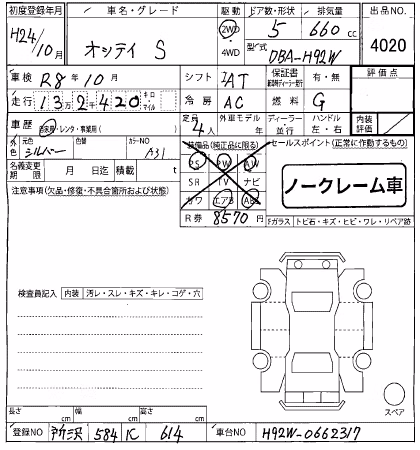 初度登録年月 車名・グレード 駆動 ドア数・形状 排気量 出品NO.
H24/10月 オッティ S 2WD 4WD 5 660 cc 4020
型式 DBA-H92W
車検 R8年10月 シフト IAT 保証書 有・無 評価点
走行 13万2千420 キロ・マイル 冷房 AC 燃料 G
車歴 自家用・レンタ・事業用( ) 定員 4人 外車モデル 年 ディーラー・並行 ハンドル 左・右 内装評価
外色 元色 シルバー 色替 カラーNO A31 装備品(純正品に限る) セールスポイント(正常に作動するもの)
名義変更期限 月 日迄 積載 t PS PW AW
SR TV ナビ
カワ エアB ABS
ノークレーム車
注意事項(欠品・修復・不具合箇所および状態) R券 8570円 Fガラス トビ石・キズ・ヒビ・ワレ・リペア跡
検査員記入 内装 汚レ・スレ・キズ・キレ・コゲ・穴
スペア
長さ cm 幅 cm 高さ cm
登録NO 584 に 614 車台NO H92W-0662317